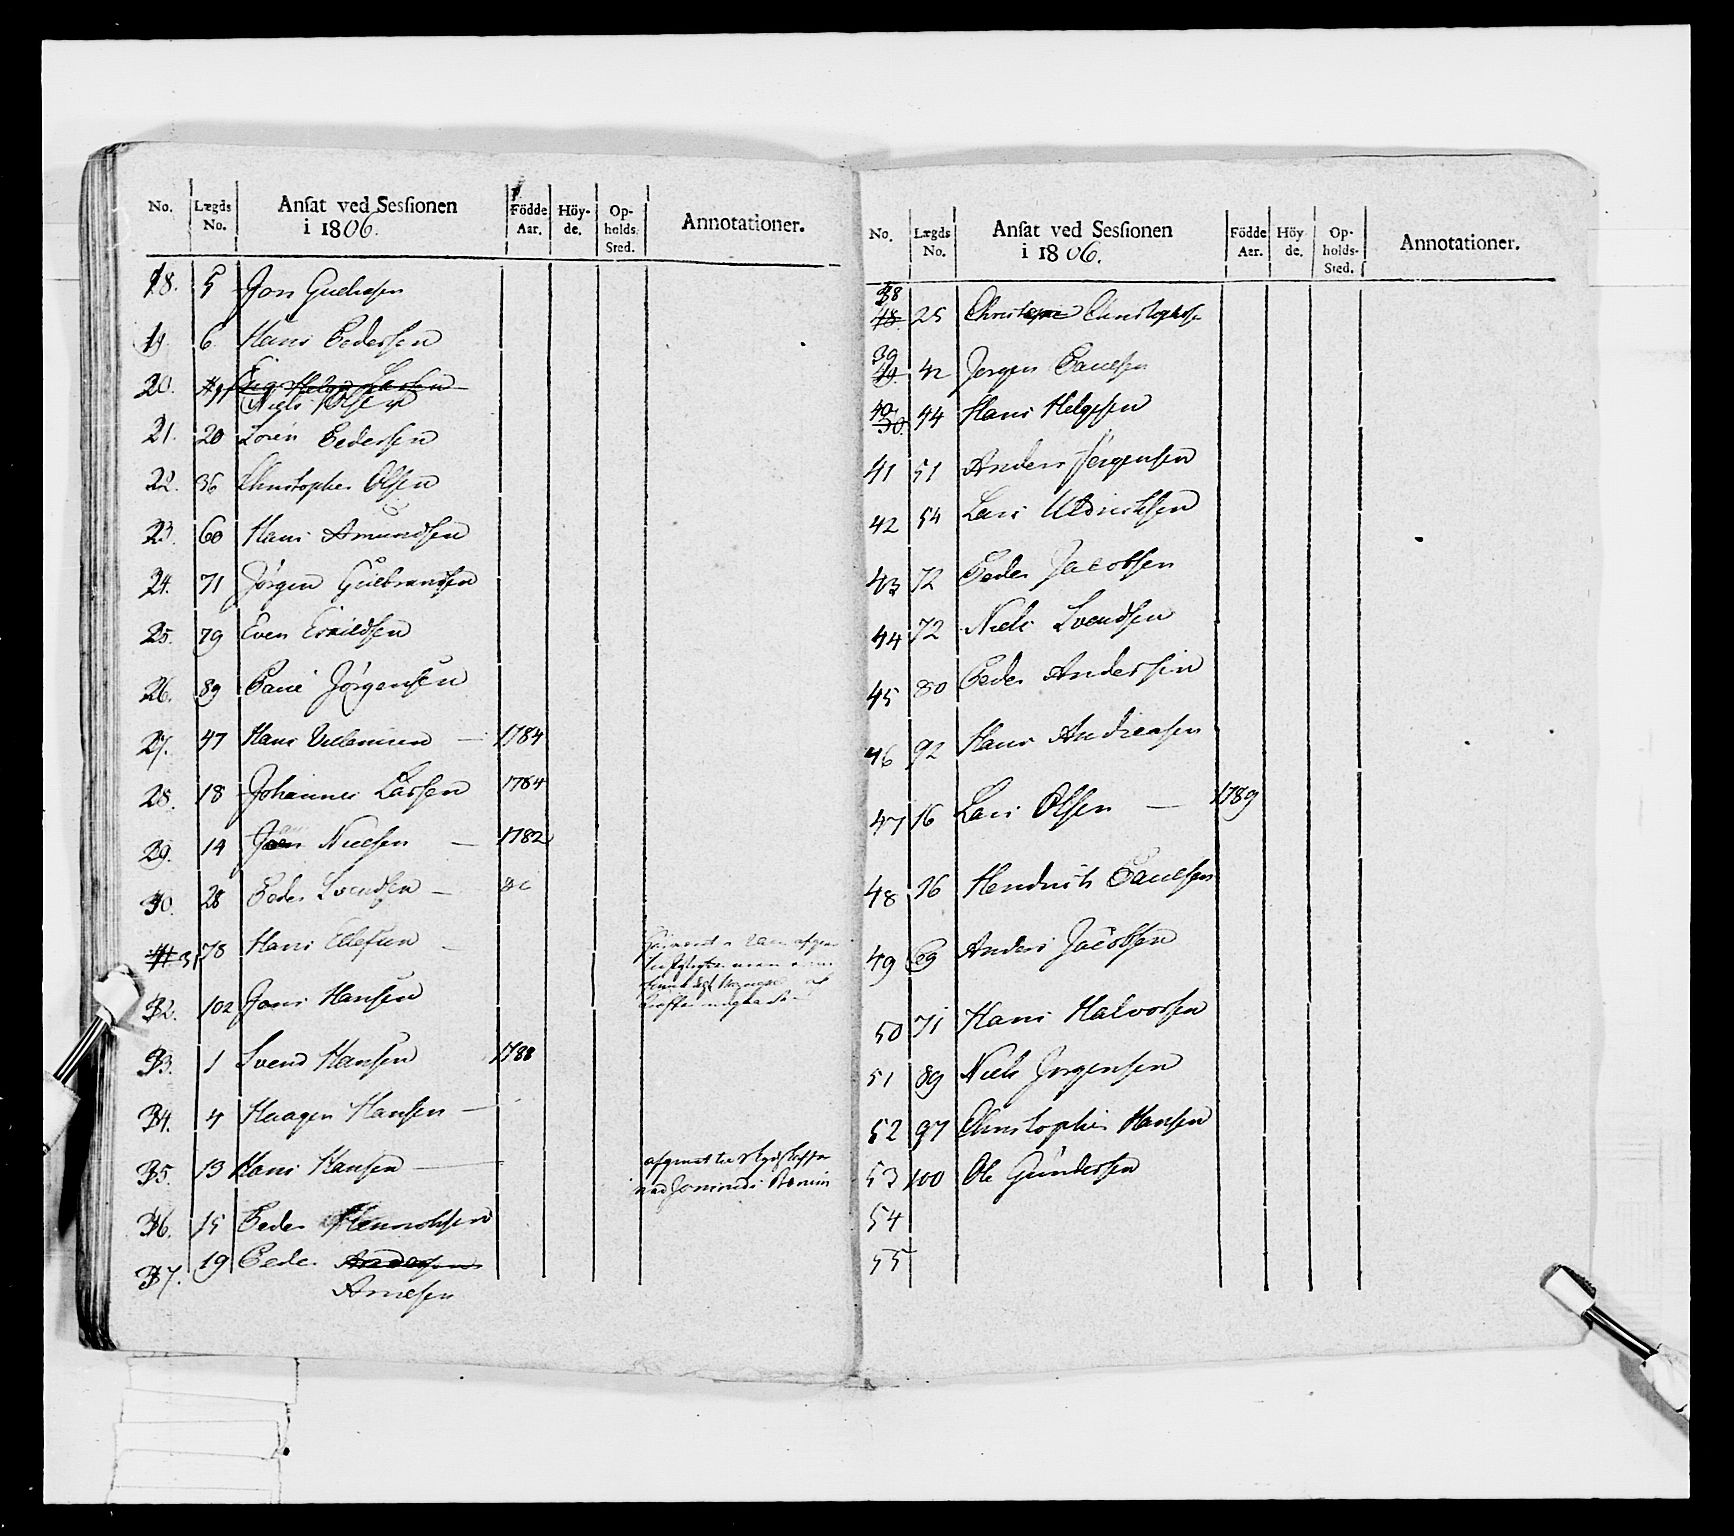 No. Lægds No. Ansat ved Sessionen i 1806. Födde Aar. Höy-de. Op-holds Sted. Annotationer.
18. 5 Jon
19. 6 Hans Pedersen
20. Larsen
Niels Olsen
21. 20 Sören Pedersen
22. 36 Christopher Olsen
23. 60 Hans Amundsen
24. 71 Jörgen Gulbrandsen
25. 79 Even
26. 89 Jörgensen
27. 47 Hans Villumsen — 1784
28. 18 Johannes Larsen 1784
29. 14 Nielsen — 1782
30. 28 Peder Svendsen —
31 78 Hans Ellefsen
32. 102 Jens Hansen
33. 1 Svend Hansen 1788
34. 4 Haagen Hansen —
35. 13 Hans Hansen —
36. 15 Peder Hendrichsen
37. 19 Peder Andersen
Arnesen
No. Lægds No. Ansat ved Sessionen i 1806. Födde Aar. Höy-de. Op-holds-Sted. Annotationer.
38
48. 25 Christophersen
39
49. 42 Jörgen Paulsen
40.
50. 44 Hans Helgesen
41 51 Anders Jörgensen
42 54 Lars Uldrichsen
43 72 Peder Jacobsen
44 72 Niels Svendsen
45 80 Peder Andersen
46 92 Hans Andreasen
47 16 Lars Olsen — 1789
48 26 Hendrich Paulsen
49 69 Anders Jacobsen
50 71 Hans Halvorsen
51 89 Niels Jörgensen
52 97 Christopher Hansen
53 100 Ole Gundersen
54
55